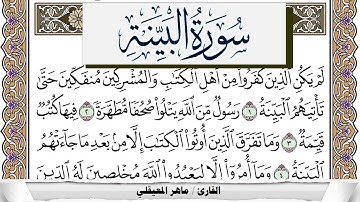 سُورَةُ البَيِّنَةِ
لَمْ يَكُنِ الَّذِينَ كَفَرُوا مِنْ أَهْلِ الْكِتَابِ وَالْمُشْرِكِينَ مُنفَكِّينَ حَتَّى
تَأْتِيَهُمُ الْبَيِّنَةُ ١ رَسُولٌ مِّنَ اللَّهِ يَتْلُوا صُحُفًا مُّطَهَّرَةً ٢ فِيهَا كُتُبٌ
قَيِّمَةٌ ٣ وَمَا تَفَرَّقَ الَّذِينَ أُوتُوا الْكِتَابَ إِلَّا مِن بَعْدِ مَا جَاءَتْهُمُ
الْبَيِّنَةُ ٤ وَمَا أُمِرُوا إِلَّا لِيَعْبُدُوا اللَّهَ مُخْلِصِينَ لَهُ الدِّينَ
القارئ / ماهر المعيقلي